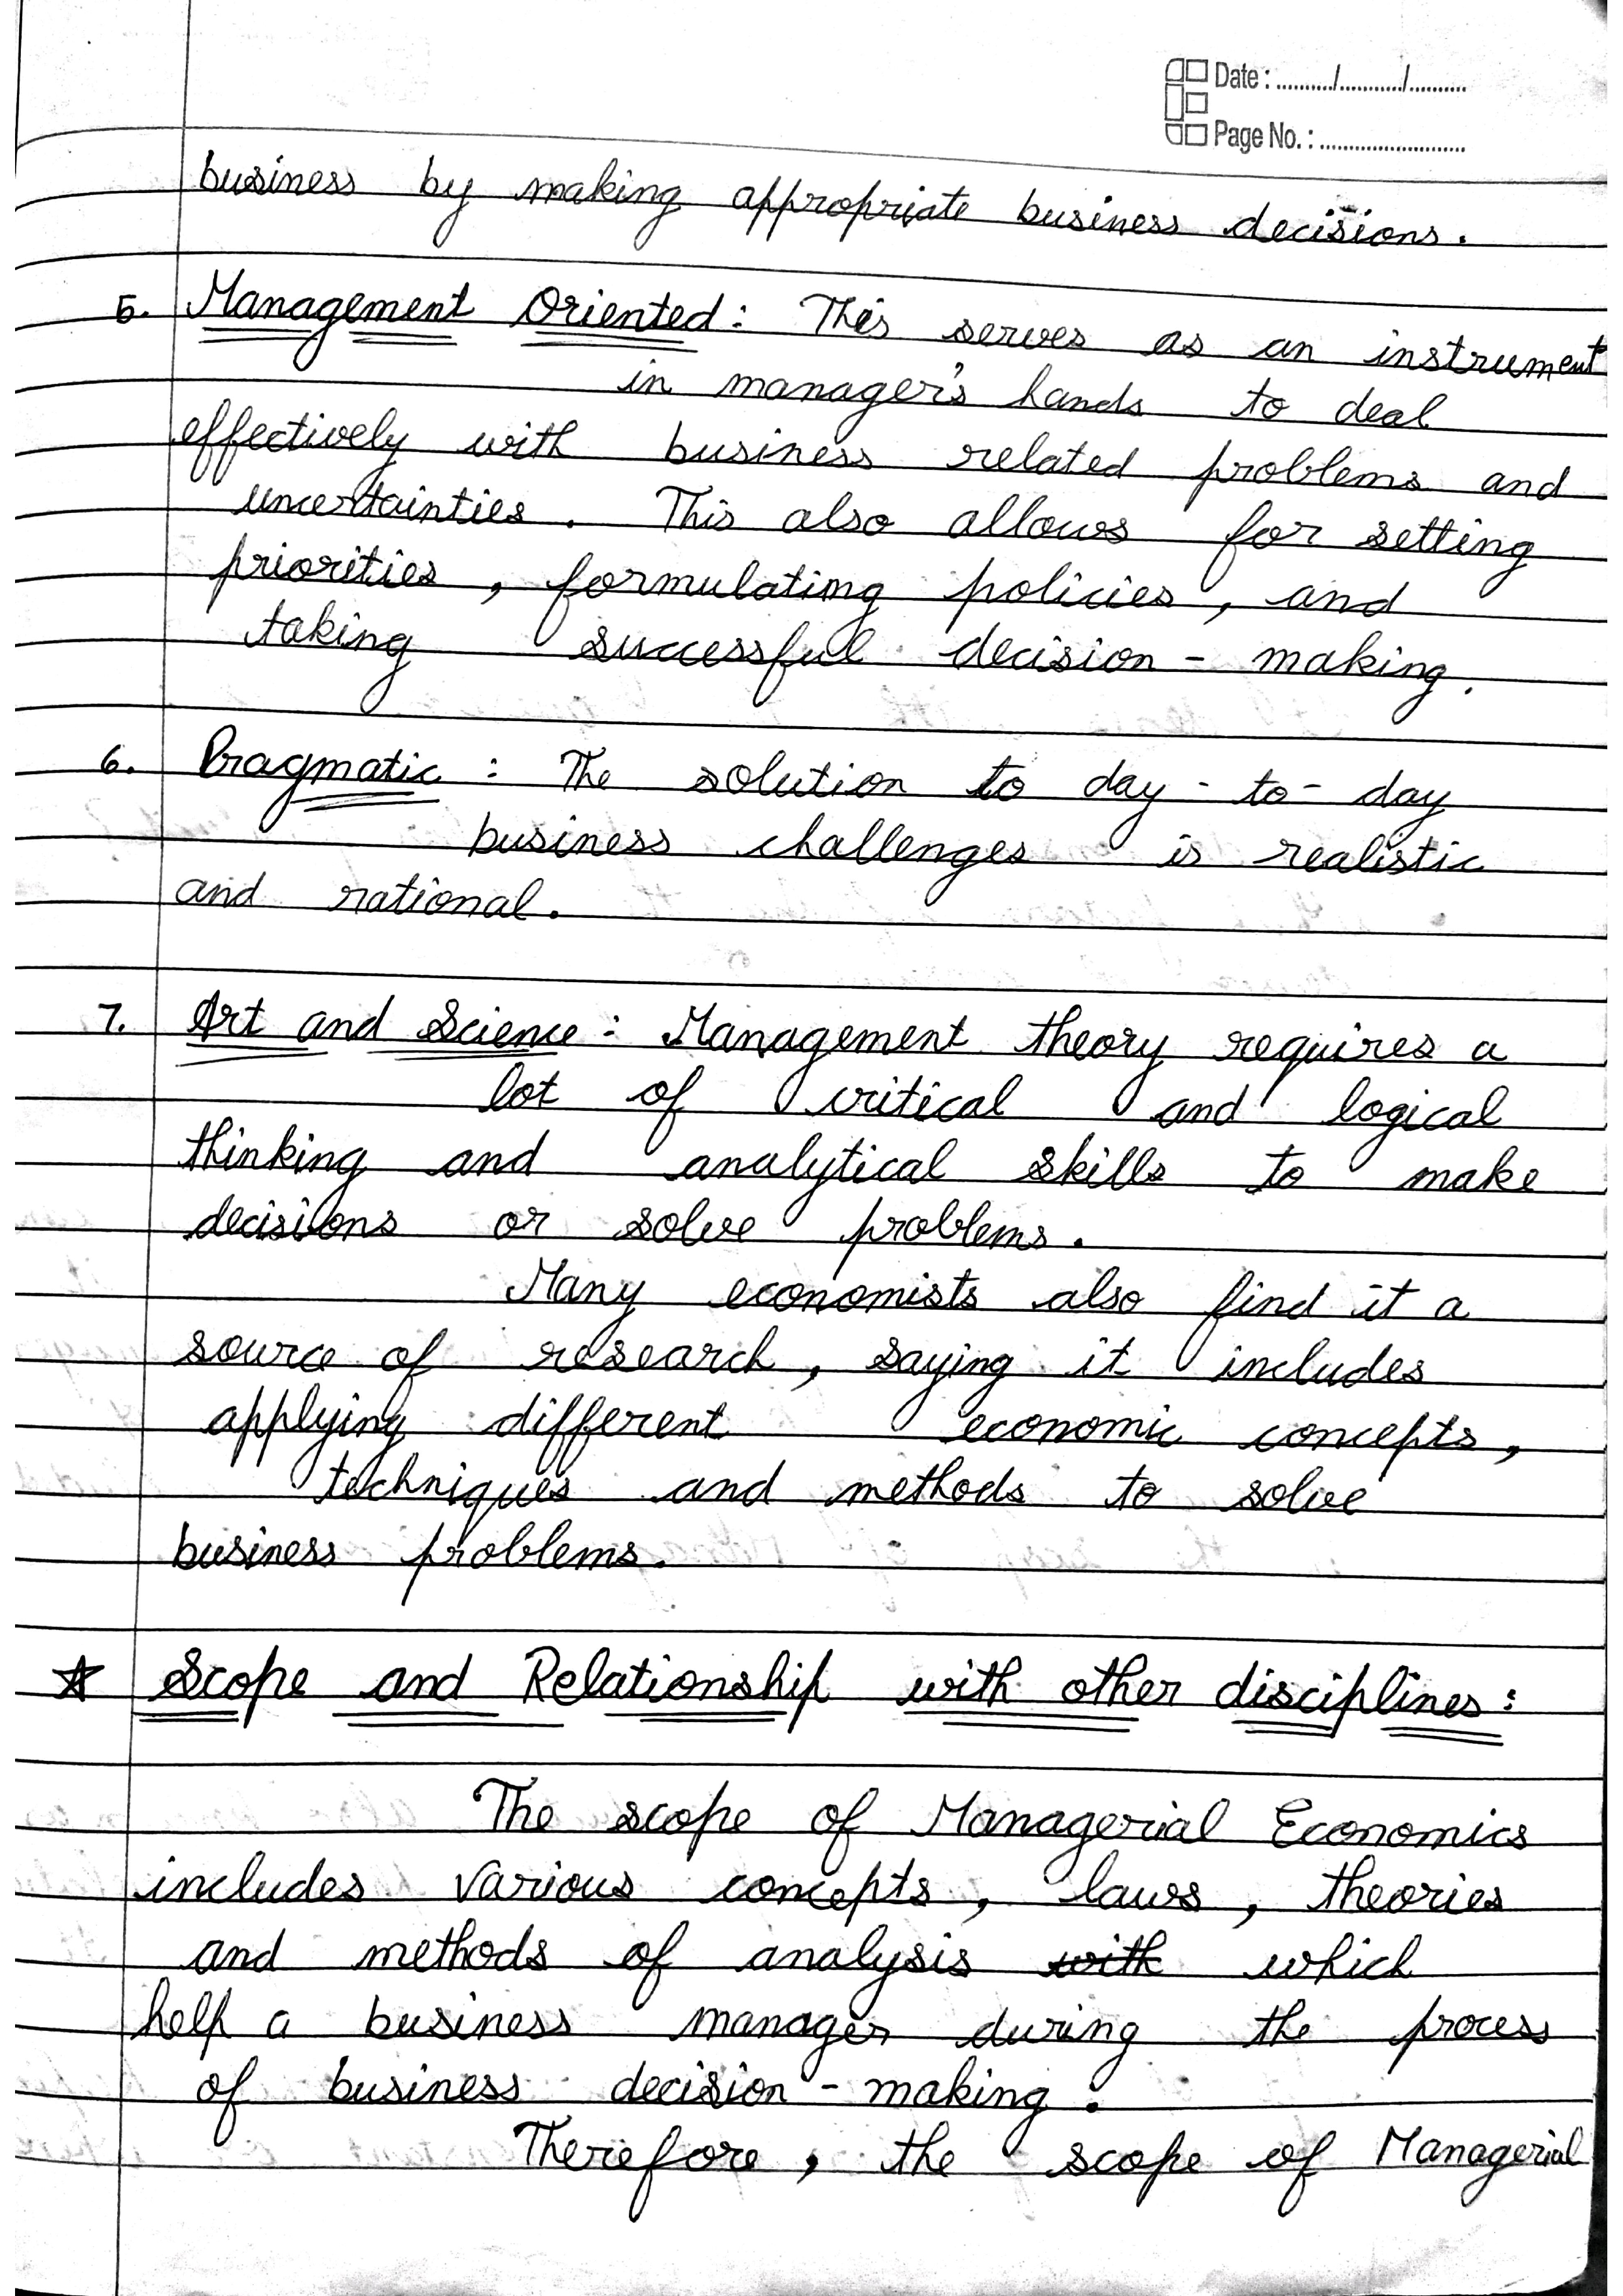 Date : ........../.........../..........
Page No. : .........................
business by making appropriate business decisions.
5. Management Oriented : This serves as an instrument
in manager's hands to deal
effectively with business related problems and
uncertainties. This also allows for setting
priorities, formulating policies, and
taking successful decision - making.
6. Pragmatic : The solution to day - to - day
business challenges is realistic
and rational.
7. Art and Science : Management theory requires a
lot of critical and logical
thinking and analytical skills to make
decisions or solve problems.
Many economists also find it a
source of research, saying it includes
applying different economic concepts,
techniques and methods to solve
business problems.
☆ Scope and Relationship with other disciplines :
The scope of Managerial Economics
includes various concepts, laws, theories
and methods of analysis with which
help a business manager during the process
of business decision - making.
Therefore, the scope of Managerial